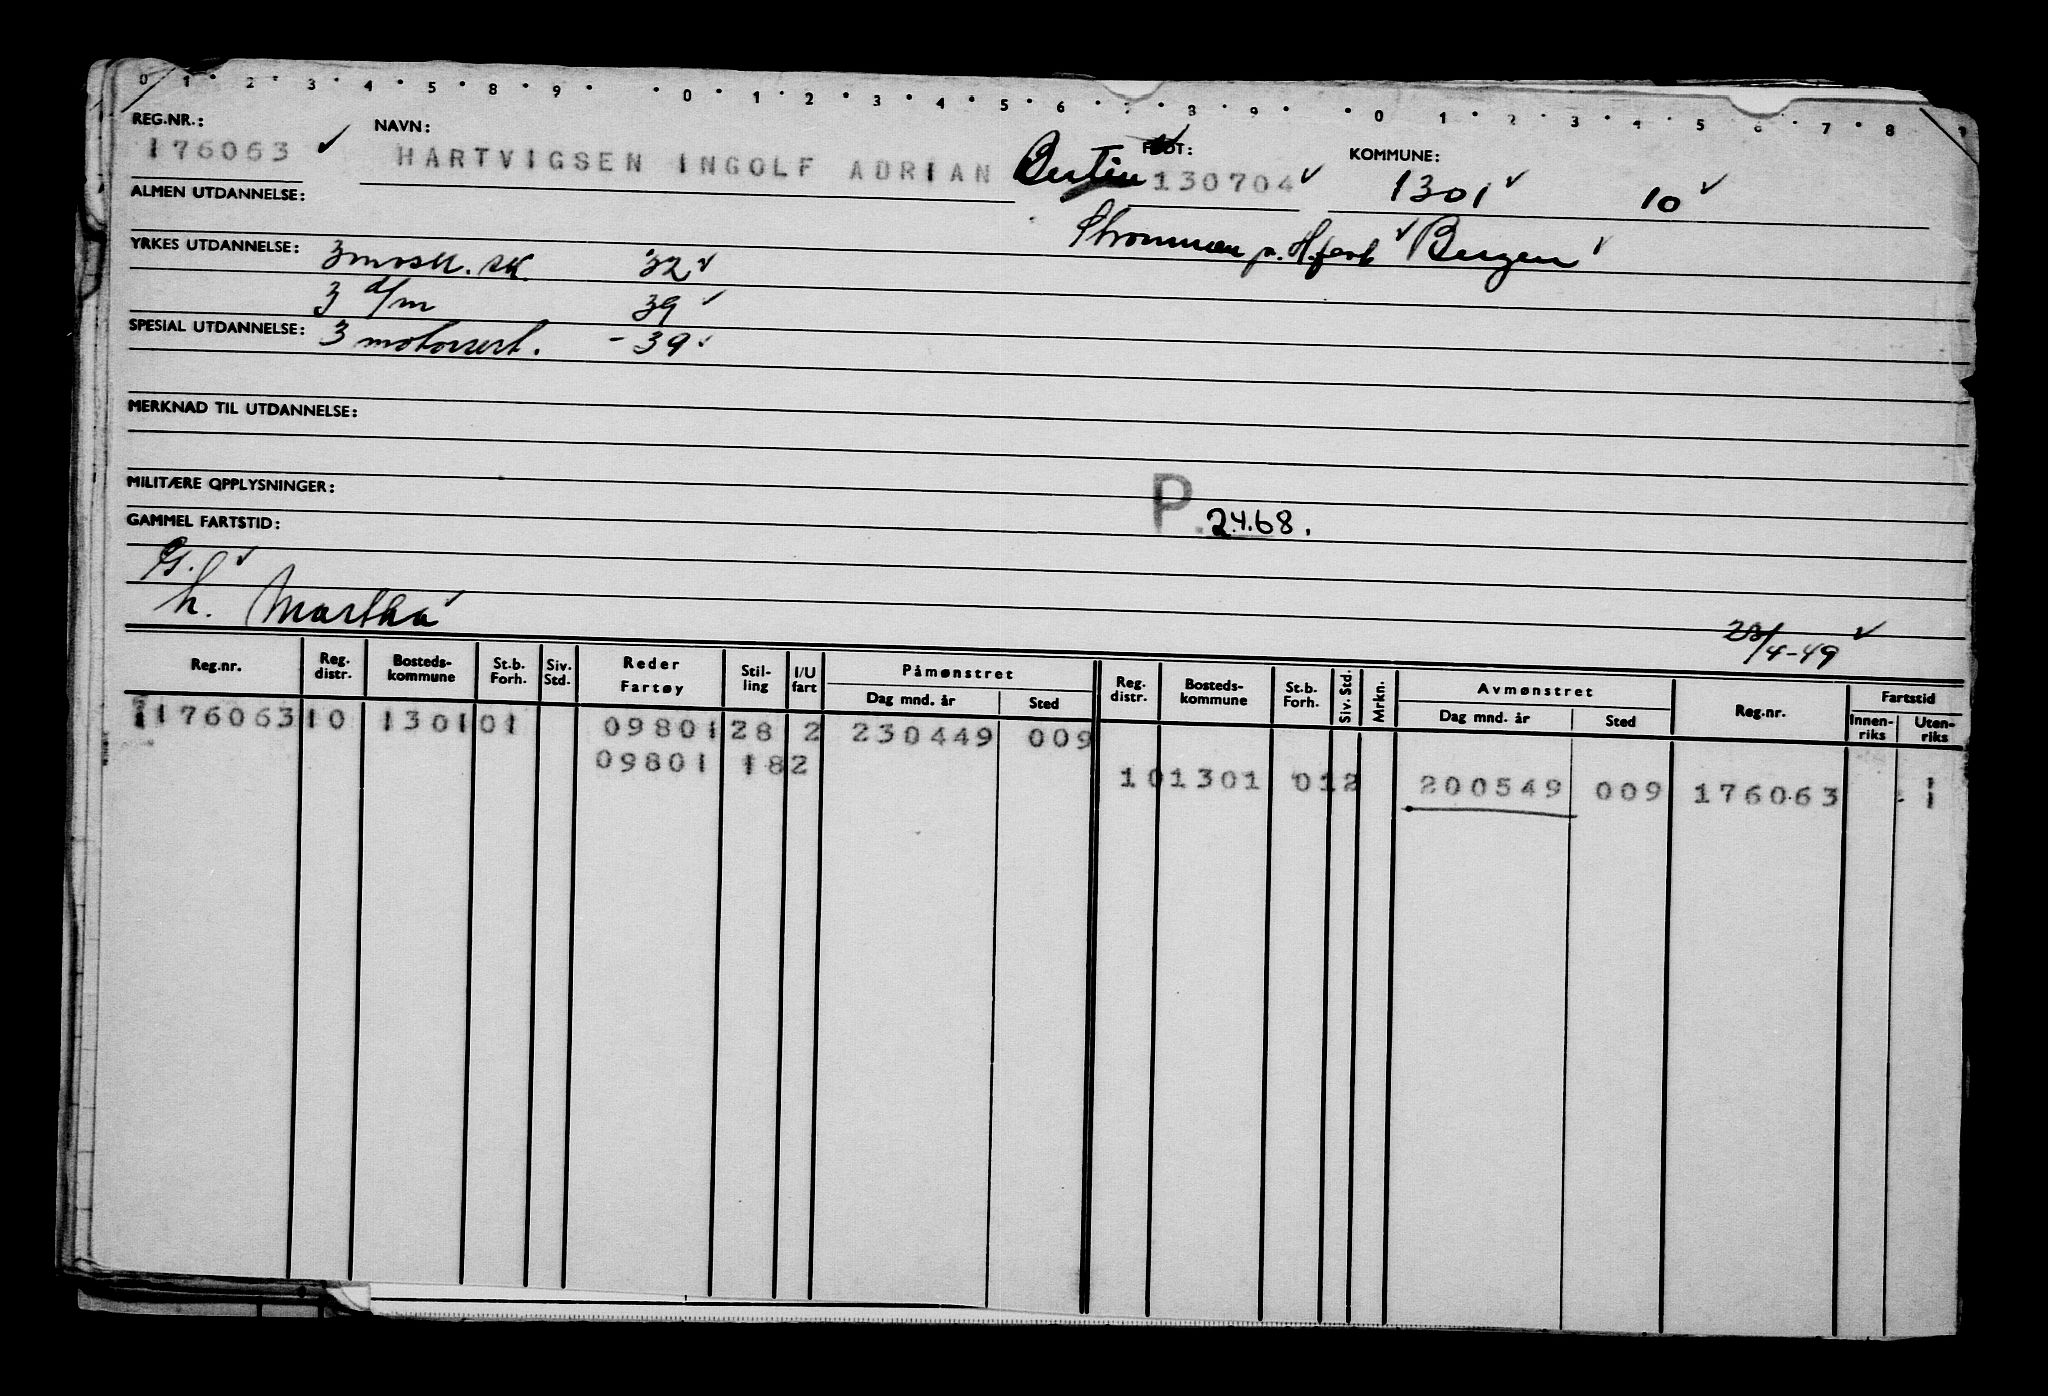 0 1 2 3 4 5 8 9 0 1 2 3 4 5 6 7 8 9 0 1 2 3 4 5 6 7 8 9
REG.NR.: NAVN: FØDT: KOMMUNE:
176063 HARTVIGSEN INGOLF ADRIAN 130704 1301 10
ALMEN UTDANNELSE:
p. H.fest Bergen
YRKES UTDANNELSE: 3 mask. sk. 32
3 d/m 39
SPESIAL UTDANNELSE: 3 motorsert. - 39
MERKNAD TIL UTDANNELSE:
MILITÆRE OPPLYSNINGER:
P. 2468.
GAMMEL FARTSTID:
G.
h. Martha
23/4-49
Reg.nr. Reg. distr. Bosteds-kommune St.b. Forh. Siv. Std. Reder Fartøy Stil-ling I/U fart Påmønstret Dag mnd. år Sted Reg. distr. Bosteds-kommune St.b. Forh. Siv. Std. Mrkn. Avmønstret Dag mnd. år Sted Reg.nr. Fartstid Innen-riks Uten-riks
176063 10 1301 01 09801 28 2 230449 009
09801 182
10 1301 012 200549 009 176063 1